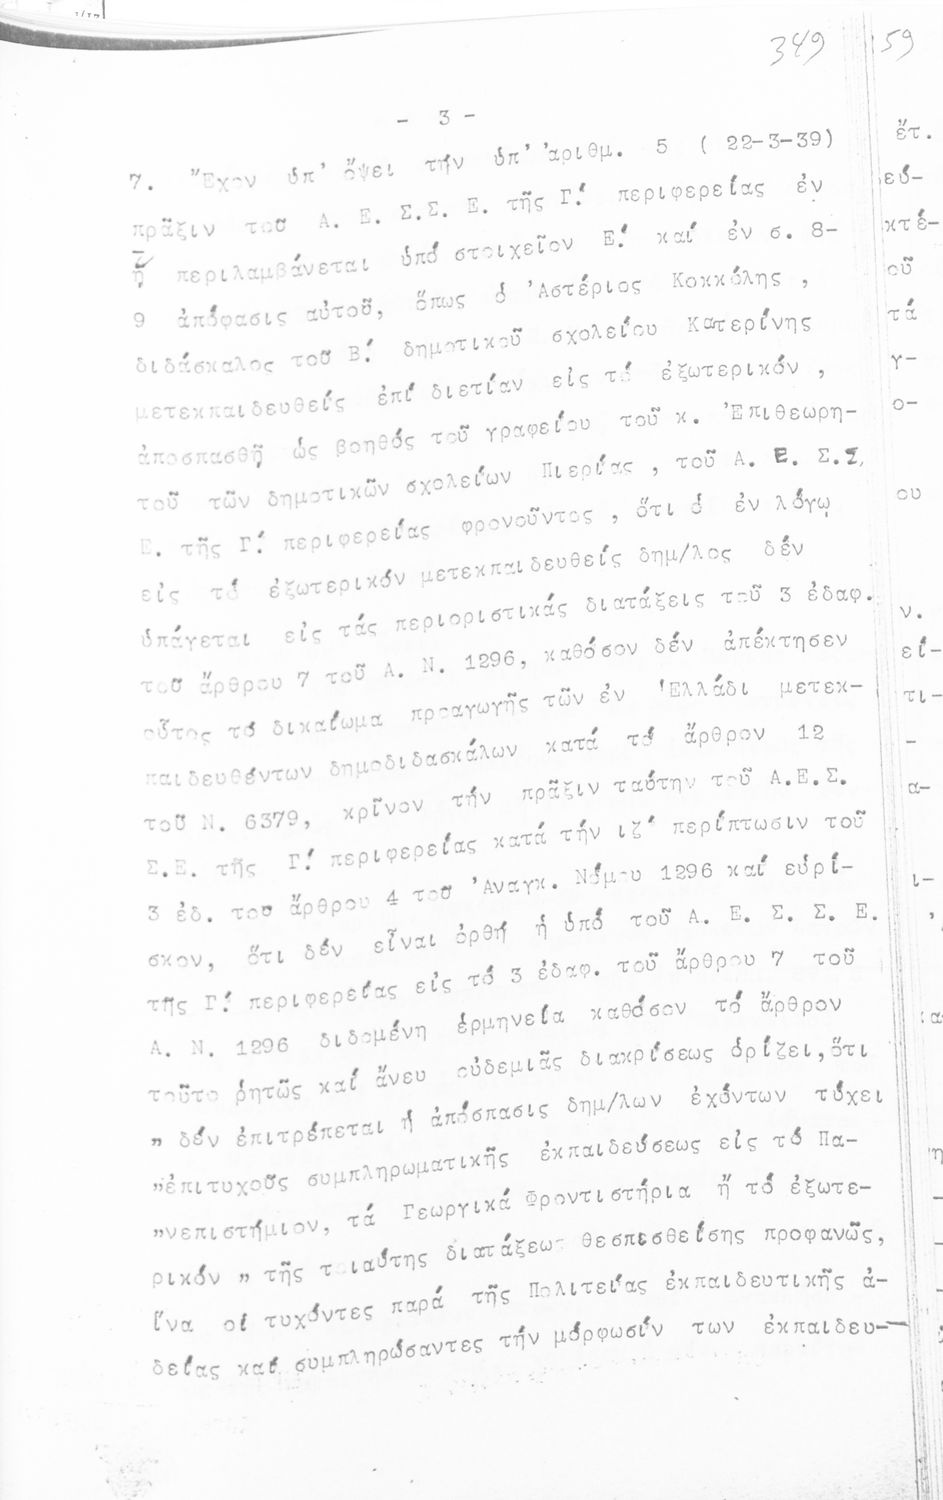 349 59
- 3 -
7. Ἔχον ὑπ' ὄψει τήν ὑπ' ἀριθμ. 5 ( 22-3-39)
πρᾶξιν τοῦ Α. Ε. Σ.Σ. Ε. τῆς Γ.' περιφερείας ἐν
ᾗ περιλαμβάνεται ὑπό στοιχεῖον Ε.' καί ἐν σ. 8-
9 ἀπόφασις αὐτοῦ, ὅπως ὁ 'Αστέριος Κοκκόλης ,
διδάσκαλος τοῦ Β.' δημοτικοῦ σχολείου Κατερίνης
μετεκπαιδευθείς ἐπί διετίαν εἰς τό ἐξωτερικόν ,
ἀποσπασθῇ ὡς βοηθός τοῦ γραφείου τοῦ κ. 'Επιθεωρη-
τοῦ τῶν δημοτικῶν σχολείων Πιερίας , τοῦ Α. Ε. Σ.Σ.
Ε. τῆς Γ.' περιφερείας φρονοῦντος , ὅτι ὁ ἐν λόγῳ
εἰς τό ἐξωτερικόν μετεκπαιδευθείς δημ/λος δέν
ὑπάγεται εἰς τάς περιοριστικάς διατάξεις τοῦ 3 ἐδαφ.
τοῦ ἄρθρου 7 τοῦ Α. Ν. 1296, καθόσον δέν ἀπέκτησεν
οὗτος τό δικαίωμα προαγωγῆς τῶν ἐν 'Ελλάδι μετεκ-
παιδευθέντων δημοδιδασκάλων κατά τό ἄρθρον 12
τοῦ Ν. 6379, κρῖνον τήν πρᾶξιν ταύτην τοῦ Α.Ε.Σ.
Σ.Ε. τῆς Γ.' περιφερείας κατά τήν ιζ' περίπτωσιν τοῦ
3 ἐδ. του ἄρθρου 4 του 'Αναγκ. Νόμου 1296 καί εὑρί-
σκον, ὅτι δέν εἶναι ὀρθή ἡ ὑπό τοῦ Α. Ε. Σ. Σ. Ε.
τῆς Γ.' περιφερείας εἰς τό 3 ἐδαφ. τοῦ ἄρθρου 7 τοῦ
Α. Ν. 1296 διδομένη ἑρμηνεία καθόσον τό ἄρθρον
τοῦτο ῥητῶς καί ἄνευ οὐδεμιᾶς διακρίσεως ὁρίζει,ὅτι
" δέν ἐπιτρέπεται ἡ ἀπόσπασις δημ/λων ἐχόντων τύχει
"ἐπιτυχοῦς συμπληρωματικῆς ἐκπαιδεύσεως εἰς τό Πα-
"νεπιστήμιον, τά Γεωργικά Φροντιστήρια ἤ τό ἐξωτε-
ρικόν " τῆς τοιαύτης διατάξεως θεσπεσθείσης προφανῶς,
ἵνα οἱ τυχόντες παρά τῆς Πολιτείας ἐκπαιδευτικῆς ἀ-
δείας καί συμπληρώσαντες τήν μόρφωσίν των ἐκπαιδευ-
ἔτ.
εύ-
κτέ-
οῦ
τά
γ-
ο-
ου
ν.
εί-
τι-
-
α-
ι-